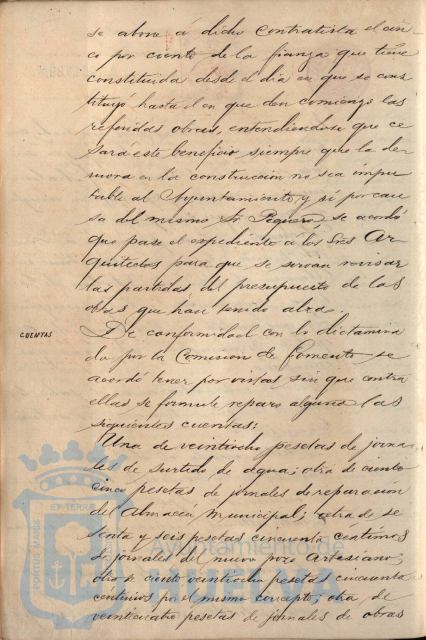 se abone á dicho contratista el cin-
co por ciento de la fianza que tiene
constituida desde el dia en que se cons-
tituyó hasta el en que den comienzo las
referidas obras, entendiendose que ce
sará este beneficio siempre que la de-
mora en la construccion no sea impu-
table al Ayuntamiento y si por cau-
sa del mismo Sr. Peguero, se acordó
que pase el expediente á los Sres Ar-
quitectos para que se sirvan revisar
las partidas del presupuesto de las
obras que han tenido alza.
CUENTAS
De conformidad con lo dictamina
do por la Comision de Fomento, se
acordó tener por vistas sin que contra
ellas se formule reparo alguno las
siguientes cuentas:
Una de veintiocho pesetas de jorna-
les de surtido de agua; otra de ciento
cinco pesetas de jornales de reparación
del Almacen municipal; otra de se
senta y seis pesetas cincuenta céntimos
de jornales del nuevo pozo Artesiano;
otra de ciento veintiocho pesetas cincuenta
centimos por el mismo concepto; otra de
veinticuatro pesetas de jornales de obras
PORTUS MARIS ET TERRAE
Ayuntamiento de